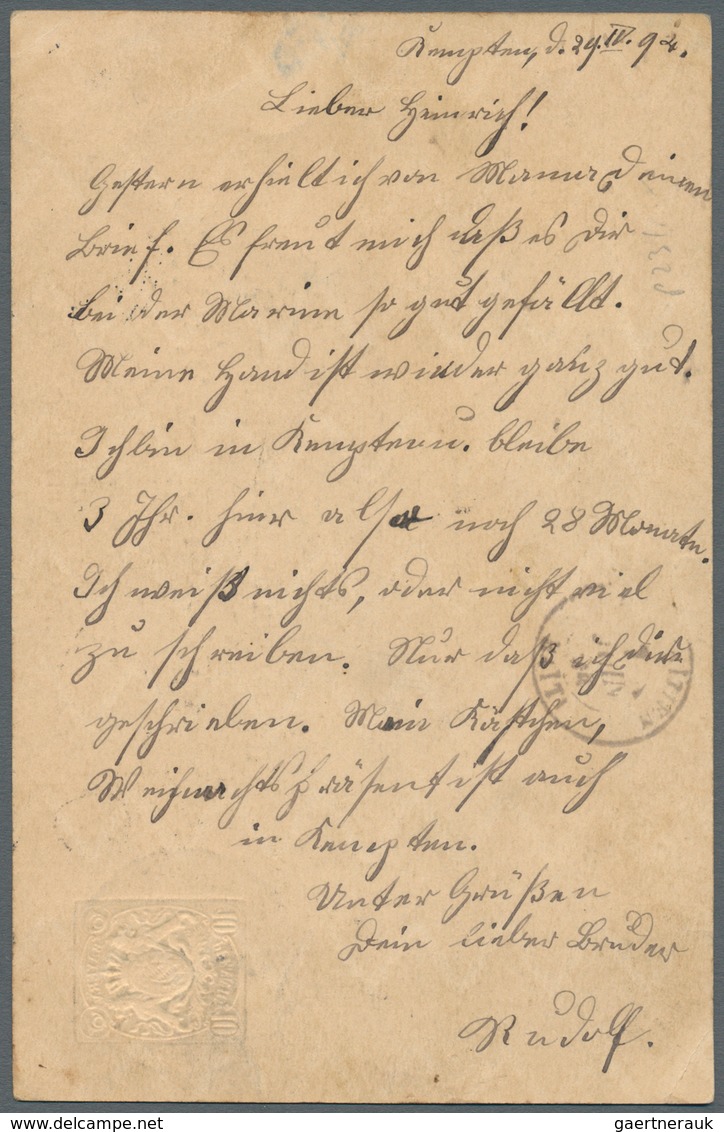 Kempten, d. 29.IV.94.
Lieber Heinrich!
Gestern erhielt ich von Mama Deinen
Brief. Es freut mich daß es Dir
bei der Marine so gut gefällt.
Meine Hand ist wieder ganz gut.
Ich bin in Kempten u. bleibe
3 Jhr. hier also noch 28 Monate.
Ich weiß nichts, oder nicht viel
zu schreiben. Nur daß ich dir
geschrieben. Mein Kästchen,
Weihnachtspräsent ist auch
in Kempten.
Unter Grüßen
Dein lieber Bruder
Rudolf.
10
10
www.delcampe.net
gaertnerauk